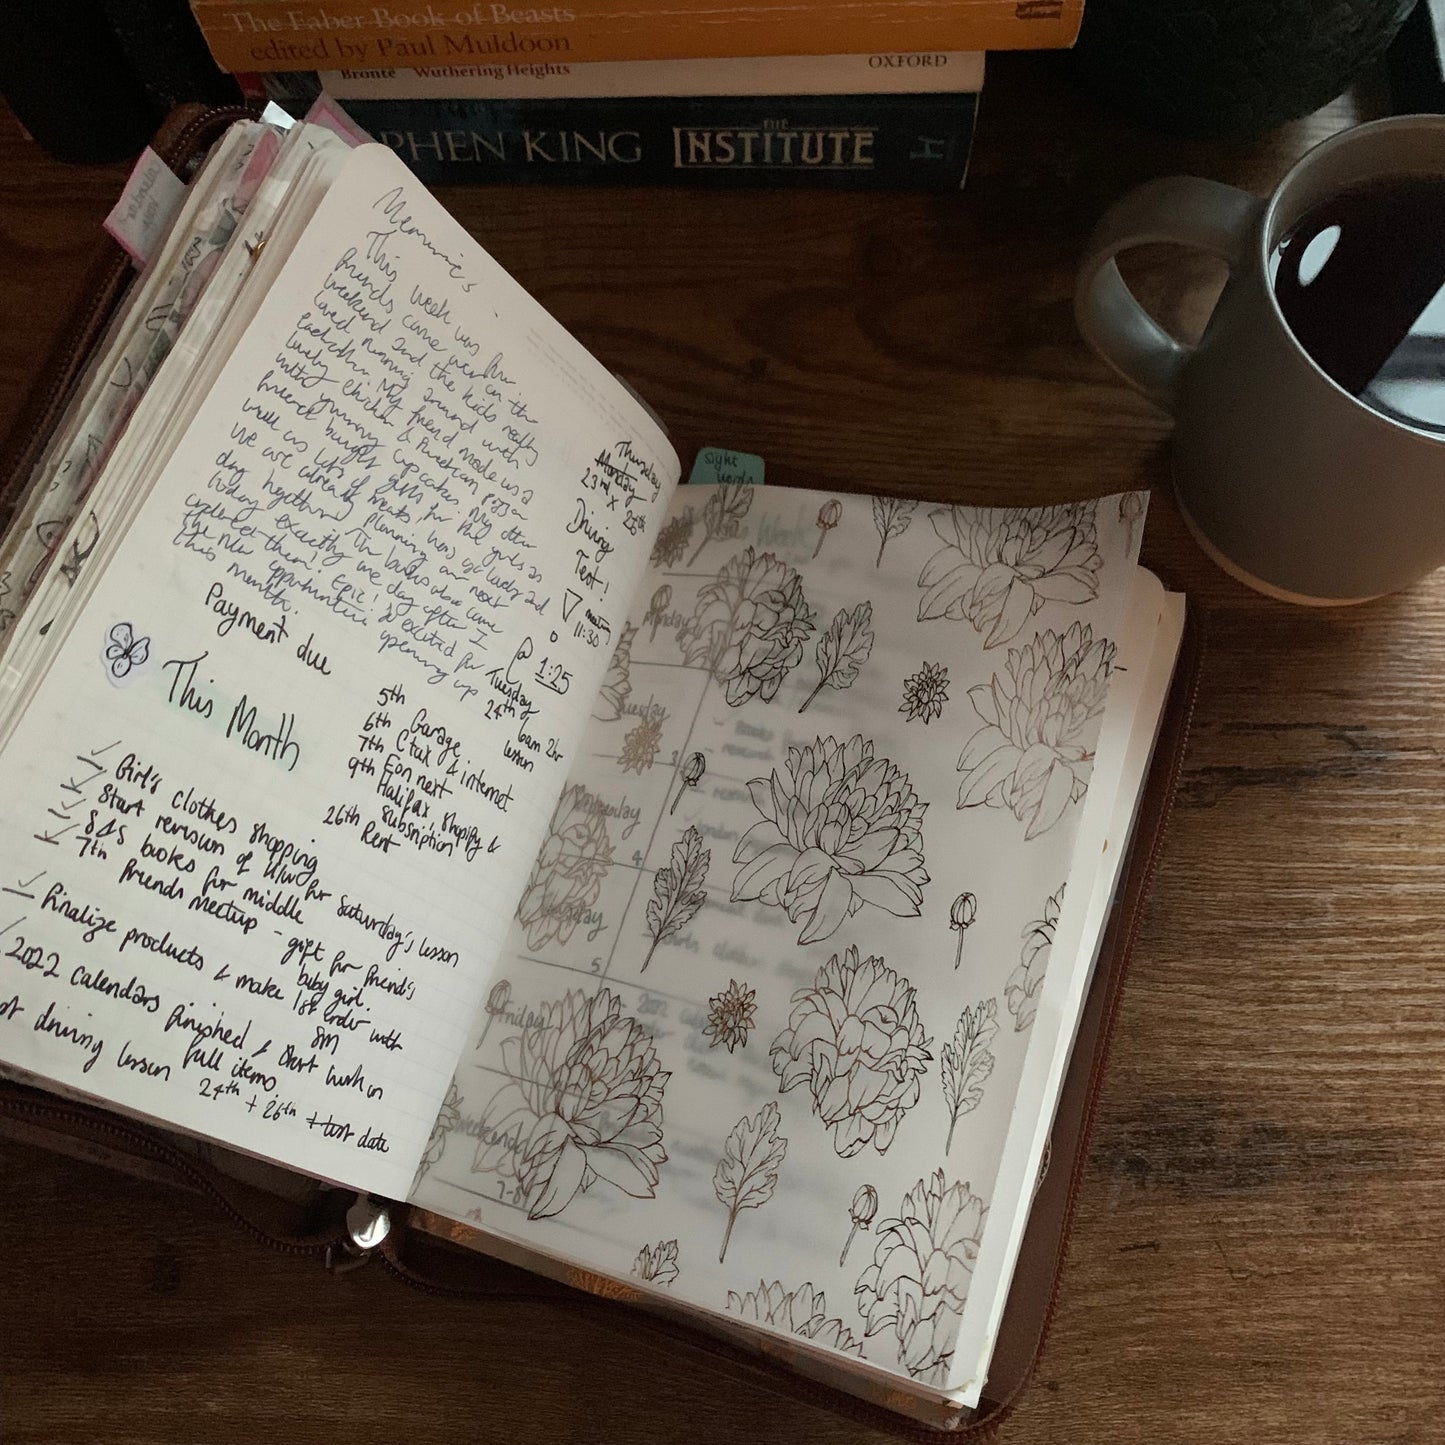 The Faber Book of Beasts
edited by Paul Muldoon
Brontë Wuthering Heights OXFORD
PHEN KING THE INSTITUTE
Memories
This week was fun
friends came over on the
weekend and the kids really
loved running around with
each other. My friend made us a
lovely chicken & American pizza
with yummy cupcakes. My other
friend bought gifts for the girls as
well as lots of treats, was so lovely and
we are already planning our next
day together. The books also came
today exactly we day after I
ordered them! Epic! So excited for
the new opportunities opening up
this month.
Thursday
Monday
23rd X 26th
Driving
Test!
meeting
11:30
@ 1:25
Tuesday
24th
6am 2hr
lesson
Payment due
5th Garage
6th Ctax & internet
7th Eon next
9th Halifax shopify &
subscription
26th Rent
This Month
Girl's clothes shopping
Start revision of for Saturday's lesson
books for middle
7th friends meetup - gift for friend's
baby girl.
finalize products & make 1st order with
2022 calendars finished & start work on
full items
driving lesson 24th + 26th + test date
sight
words
Week
Monday
Tuesday
3
Wednesday
4
Thursday
5
Friday
Weekend
7-8